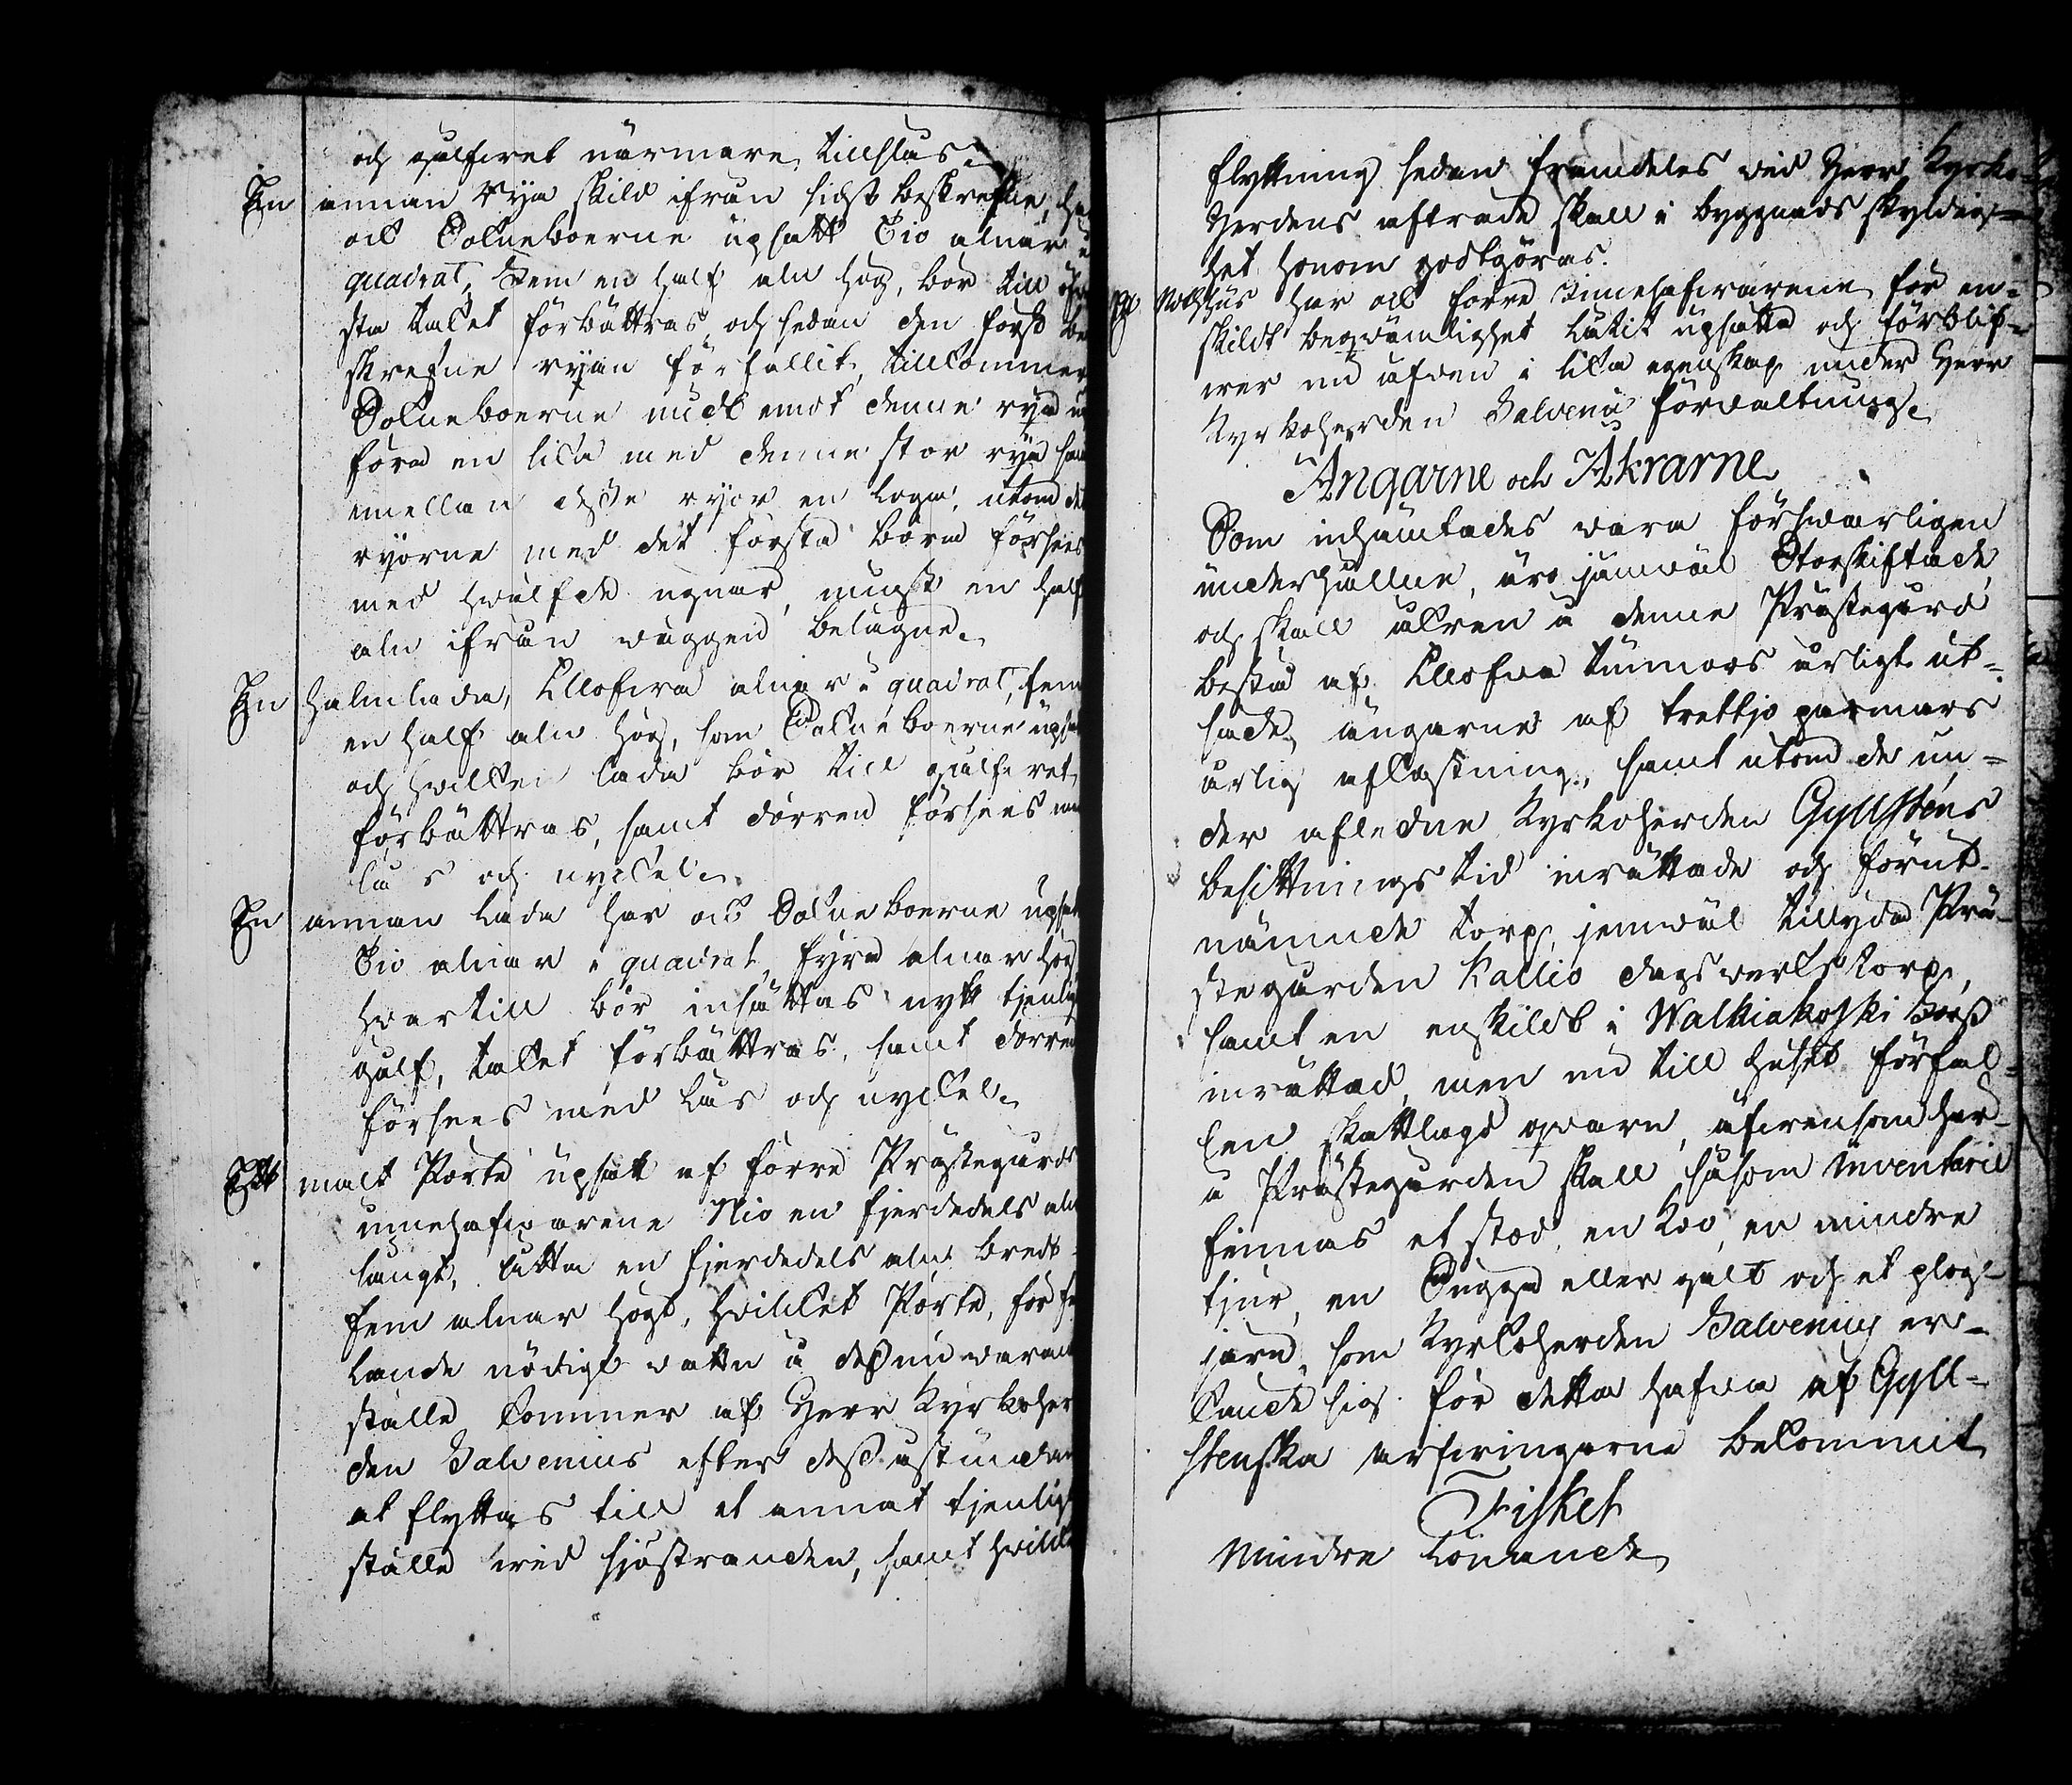 och gulfvet närmare tillslås.
En annan Rya skild ifrån sidst beskrefne, ha
ock Sokneboerne upsatt Tio alnar i
quadrat, Fem en half aln hög, bör till
sta taket förbättras och sedan den först be
skrefne ryan förfallit, tillkommer
Sokneboerne midt emot denne rya
föra en lika med denne stor rya
emellan desse ryor en loge, utom
ryorne med det första böra förses
med hvälfde ugnar, minst en half
aln ifrån väggen belägne.
En halmlada, Ellofva alnar i quadrat, fem
en half aln hög, som Sokneboerne upsat
och hvilken lada bör till gulfvet
förbättras, samt dörren förses
lås och nyckel.
En annan lada har ock Sokneboerne upsat
Tio alnar i quadrat, fyra alnar hög
hvartill bör insättas nytt tjenlig
gulf, taket förbättras, samt dörren
förses med lås och nyckel.
Ett malt Pörte upsatt af förre Prästegårds
innehafvarene Nio en fjerdedels aln
långt, Åtta en fjerdedels aln bredt
fem alnar högt, hvilket Pörte, för
lande nödigt vatn å dess nu varan
ställe kommer af Herr Kyrkoher
den Salvenius efter dess åstundan
at flyttas till et annat tjenligt
ställe vid sjöstranden, samt hvilk
flyttning sedan framdeles vid Herr Kyrko-
Herdens afträde skall i byggnads skyldig-
het honom godtgöras.
Et Rökhus har ock förre Innehafvarene för en-
skildt beqvämlighet låtit upsätta och förblif-
ver nu äfven i lika egenskap under Herr
Kyrkoherden Salvenii förvaltning.
Ängarne och Åkrarne
Som inhämtades vara försvarligen
underhållne, äro jämväl Storskiftade
och skall åkren å denne Prästegård
bestå af Ellofva tunnors årligt ut-
säde, ängarne af trettjo parmars
årlig afkastning, samt utom de un-
der afledne Kyrkoherden Gyllsténs
besittnings tid inrättade och förut-
nämnde torp, jemväl tillyda Prä-
stegården Kallio dagsverks torp,
samt en enskildt i Walkiakoski Forss
inrättad, men nu till huset förfal-
len skattlagd qvarn, äfvensom här-
å Prästegården skall såsom inventarie
finnas et stod, en ko, en mindre
tjur, en Sugga eller galt och et plog-
järn, som Kyrkoherden Salvenius er-
kände sig för detta hafva af Gyll-
stenska arfvingarne bekommit
Fisket
Mindre lönande